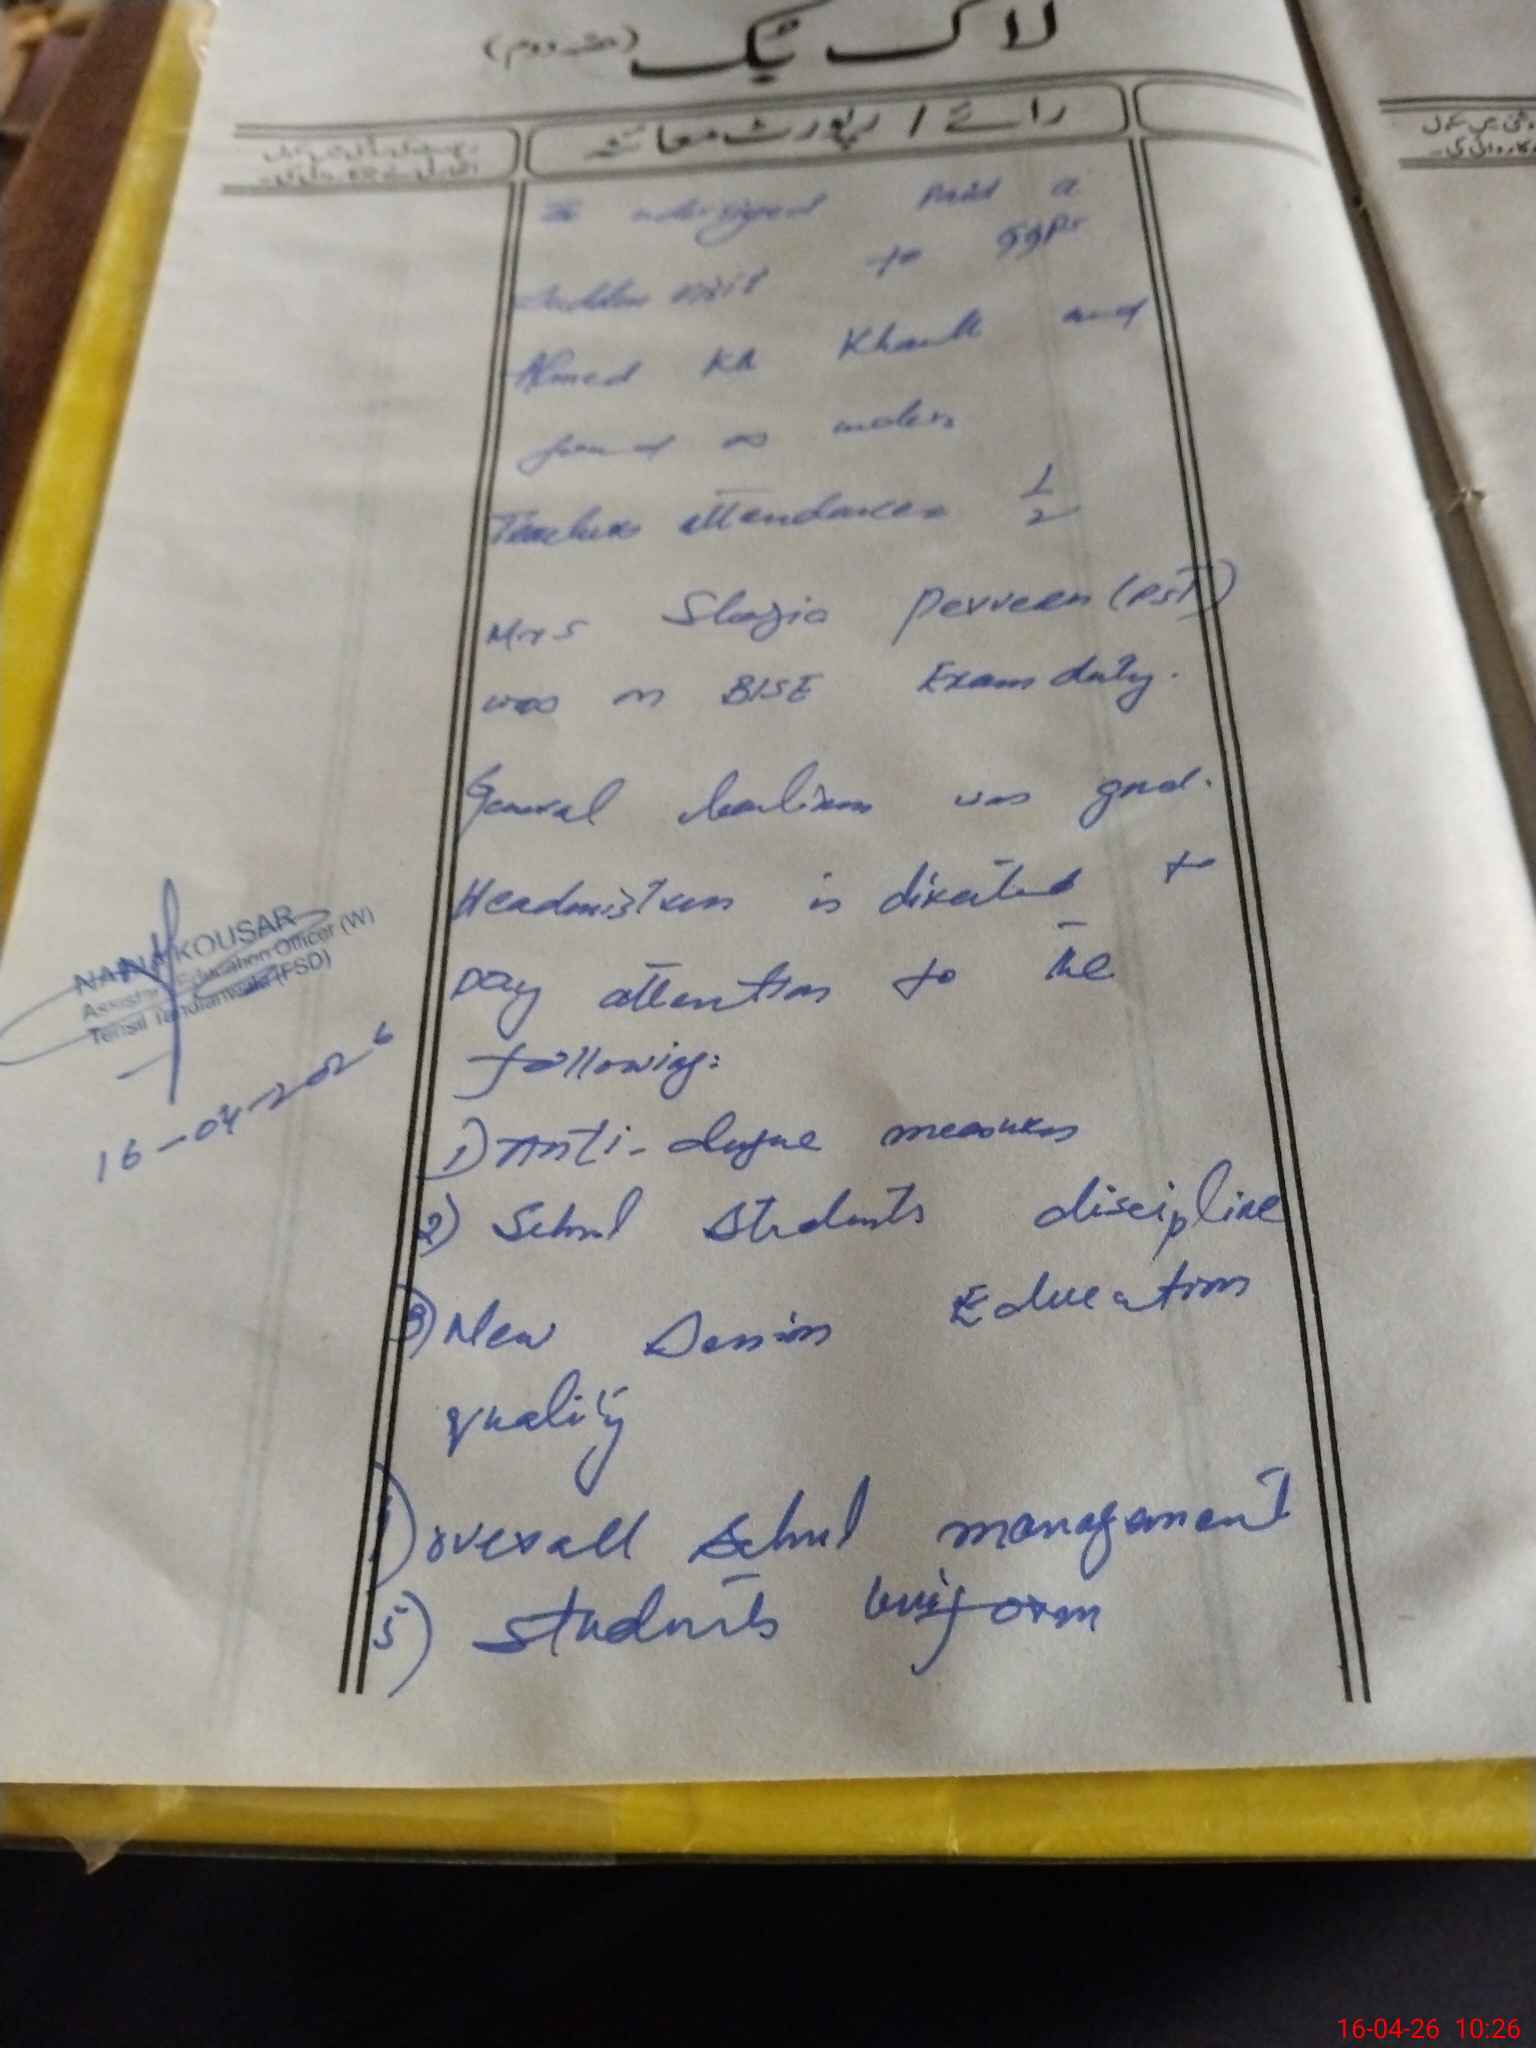 لاگ بک (حصہ دوم)
رائے / رپورٹ معائنہ
The undersigned Paid a
Sudden visit to GGPS
Ahmed Kh Kharll and
found as unders
Teachers attendances 1/2
Mrs Shazia Perveen (PST)
was on BISE Exam duty.
General was good.
Headmistress is directed to
pay attention to the
following:
1) Anti-dengue measures
2) School Students discipline
3) New Session Education
quality
4) overall School management
5) Students uniform
NAZIA KOUSAR
Assistant Education Officer (W)
Tehsil Tandlianwala (FSD)
16-04-2026
16-04-26 10:26